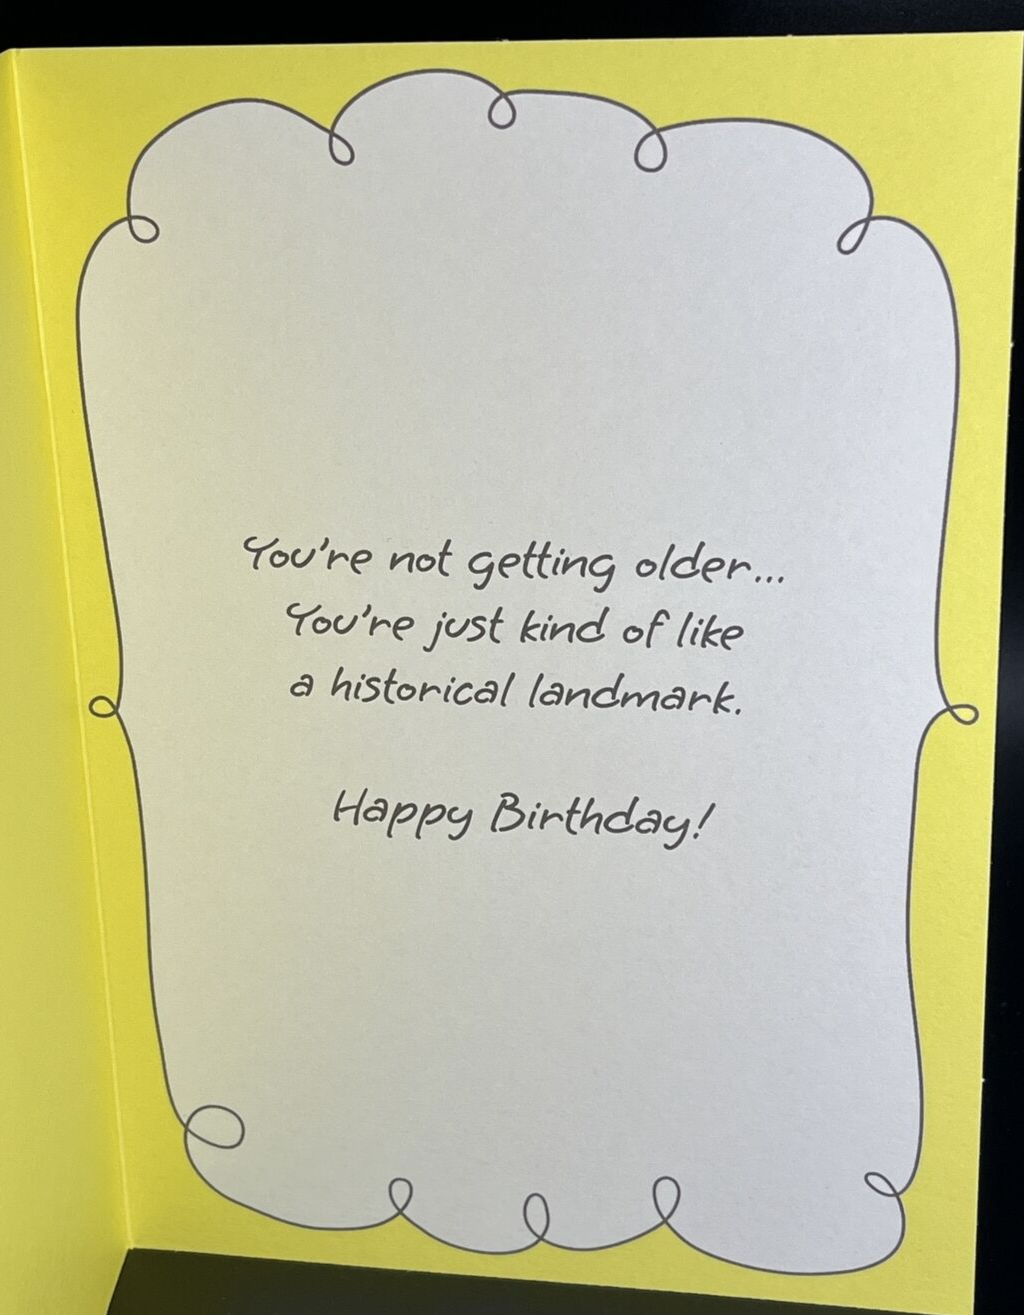 You're not getting older...
You're just kind of like
a historical landmark.
Happy Birthday!